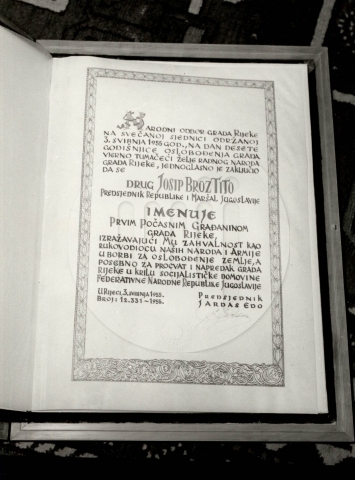 NARODNI ODBOR GRADA RIJEKE
NA SVEČANOJ SJEDNICI ODRŽANOJ
3. SVIBNJA 1955 GOD., NA DAN DESETE
GODIŠNJICE OSLOBOĐENJA GRADA
VIERNO TUMAČEĆI ŽELJE RADNOG NARODA
GRADA RIJEKE, JEDNOGLASNO JE ZAKLJUČIO
DA SE
DRUG JOSIP BROZ TITO
PREDSJEDNIK REPUBLIKE I MARŠAL JUGOSLAVIJE
IMENUJE
PRVIM POČASNIM GRAĐANINOM
GRADA RIJEKE,
IZRAŽAVAJUĆI MU ZAHVALNOST KAO
RUKOVODIOCU NAŠIH NARODA I ARMIJE
U BORBI ZA OSLOBOĐENJE ZEMLJE, A
POSEBNO ZA PROCVAT I NAPREDAK GRADA
RIJEKE U KRILU SOCIJALISTIČKE DOMOVINE
FEDERATIVNE NARODNE REPUBLIKE JUGOSLAVIJE
U RIJECI, 3. SVIBNJA 1955.
BROJ: 12.331-1955.
PREDSJEDNIK
JARDAS EDO